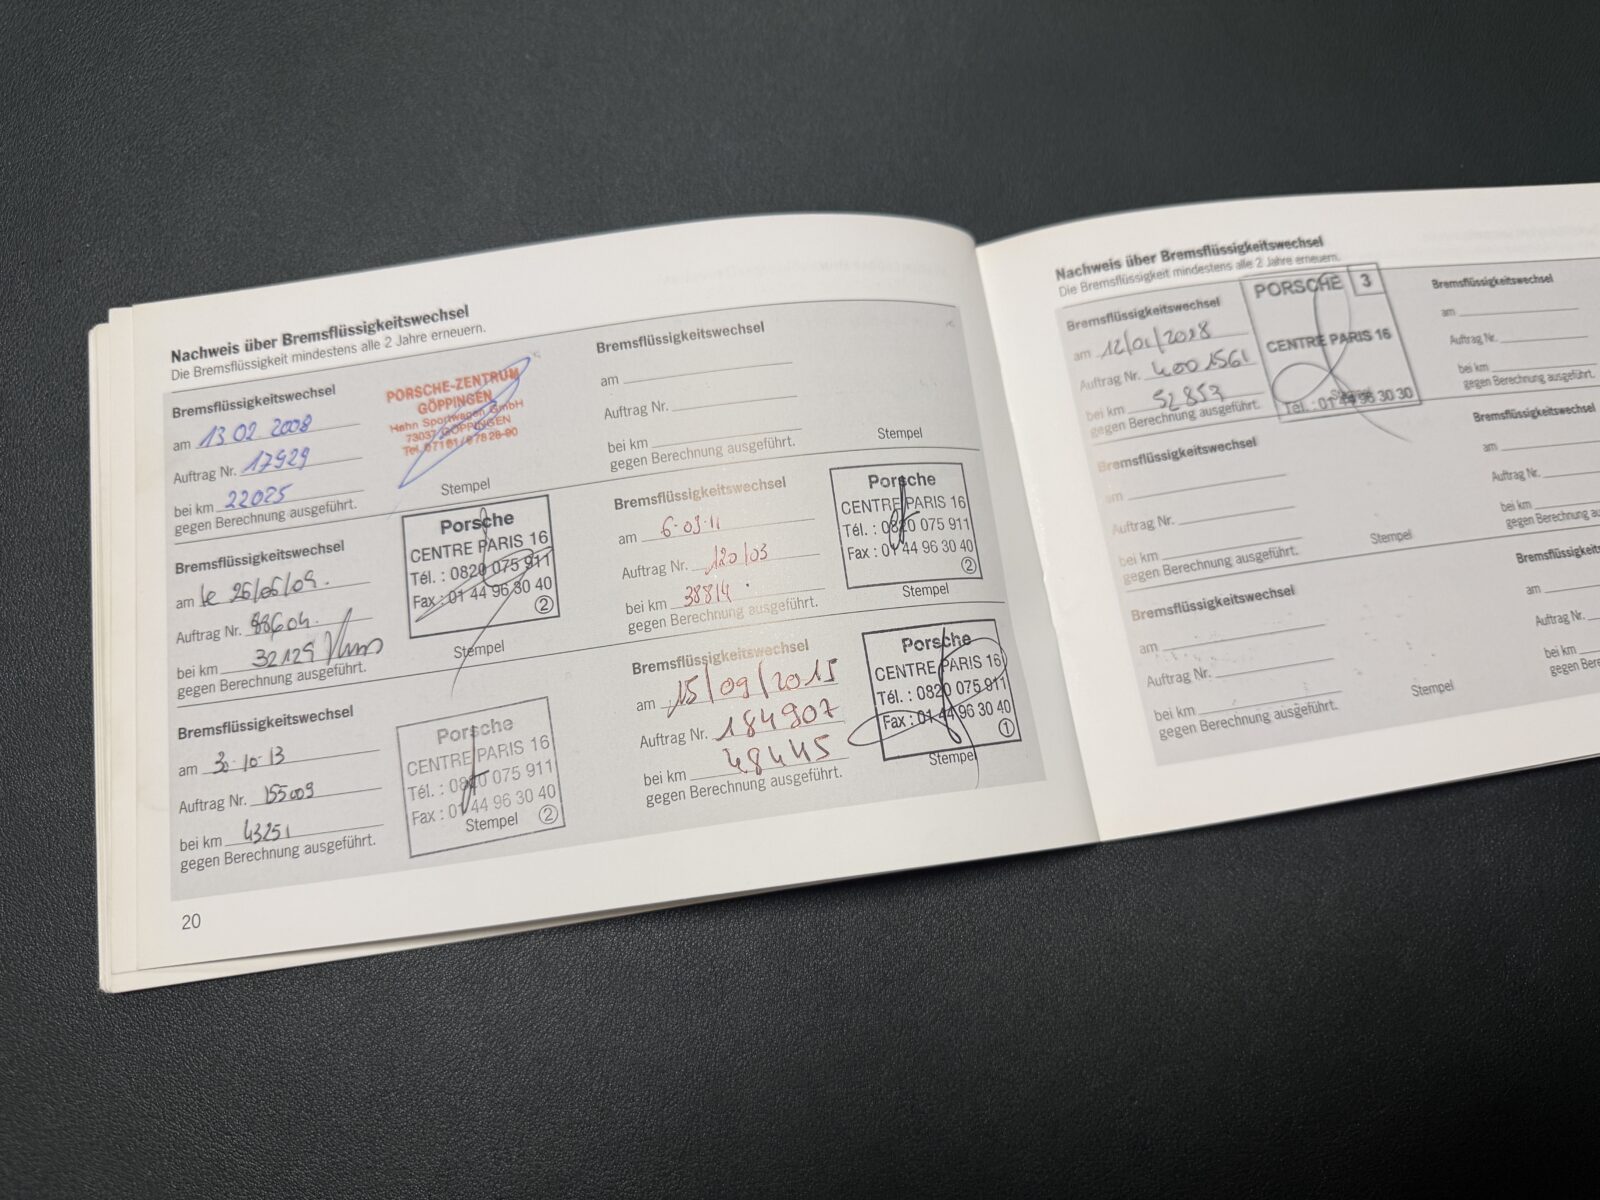 Nachweis über Bremsflüssigkeitswechsel
Die Bremsflüssigkeit mindestens alle 2 Jahre erneuern.
Bremsflüssigkeitswechsel
am 13 02 2008
Auftrag Nr. 17929
bei km 22025
gegen Berechnung ausgeführt.
PORSCHE-ZENTRUM
GÖPPINGEN
Hahn Sportwagen GmbH
73037 GÖPPINGEN
Stempel
Bremsflüssigkeitswechsel
am le 26/06/09.
Auftrag Nr. 88604.
bei km 32129 Kms
gegen Berechnung ausgeführt.
Porsche
CENTRE PARIS 16
Tél. : 0820 075 911
Fax : 01 44 96 30 40
2
Stempel
Bremsflüssigkeitswechsel
am 30-10-13
Auftrag Nr. 155009
bei km 43251
gegen Berechnung ausgeführt.
Porsche
CENTRE PARIS 16
Tél. : 0820 075 911
Fax : 01 44 96 30 40
Stempel 2
20
Bremsflüssigkeitswechsel
am
Auftrag Nr.
bei km
gegen Berechnung ausgeführt.
Stempel
Bremsflüssigkeitswechsel
am 6-09-11
Auftrag Nr. 120103
bei km 38814
gegen Berechnung ausgeführt.
Porsche
CENTRE PARIS 16
Tél. : 0820 075 911
Fax : 01 44 96 30 40
2
Stempel
Bremsflüssigkeitswechsel
am 15/09/2015
Auftrag Nr. 184907
bei km 48445
gegen Berechnung ausgeführt.
Porsche
CENTRE PARIS 16
Tél. : 0820 075 911
Fax : 01 44 96 30 40
1
Stempel
Nachweis über Bremsflüssigkeitswechsel
Die Bremsflüssigkeit mindestens alle 2 Jahre erneuern.
Bremsflüssigkeitswechsel
am 12/01/2018
Auftrag Nr. 4001561
bei km 52857
gegen Berechnung ausgeführt.
PORSCHE 3
CENTRE PARIS 16
Stempel
Tél. : 01 44 96 30 30
Bremsflüssigkeitswechsel
am
Auftrag Nr.
bei km
gegen Berechnung ausgeführt.
Stempel
Bremsflüssigkeitswechsel
am
Auftrag Nr.
bei km
gegen Berechnung ausgeführt.
Stempel
Bremsflüssigkeitswechsel
am
Auftrag Nr.
bei km
gegen Berechnung ausgeführt.
Bremsflüssigkeitswechsel
am
Auftrag Nr.
bei km
gegen Berechnung
am
Auftrag Nr.
bei km
gegen Berechnung